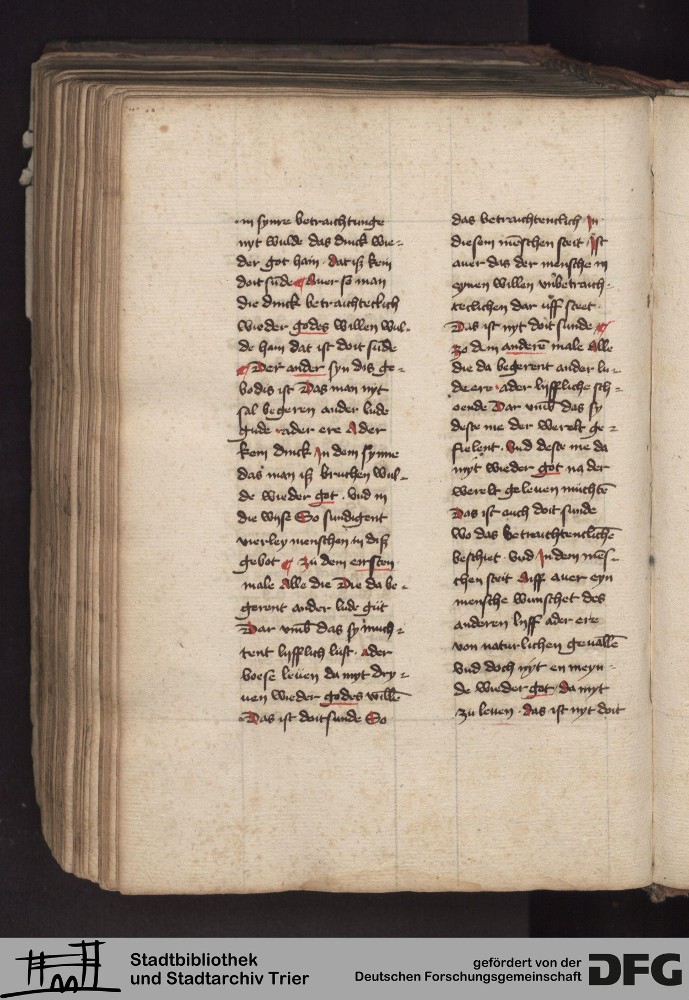 in synre betrachtunge
nyt wulde das dinck wie=
der got hain · dat iß kein
doit sūde ¶ Auer so man
die dinck betrachteclich
wieder godes willen wul=
de hain dat ist doit sūde
¶ Der ander syn dis ge=
bodis ist Das man nyt
sal begeren ander lude
gude · ader ere Ader
kein dinck In dem synne
das man iß bruchen wul=
de wieder got · vnd in
die wyse So sundigent
vierley menschen in diß
gebot ¶ zu dem ersten
male Alle die Die da be=
gerent ander lude gůt
Dar vmb das sy mich=
tent lyfflich lust · ader
boese leuen da myt dry=
uen wieder godes willē
Das ist doit sunde So
das betrachtenclich In
diesem mēschen steit / Ist
auer das der mensche in
eynen willen vnbetrach=
teclichen dar uff steet ·
Das ist nyt doit sunde ¶
zo dem anderē male Alle
die da begerent ander lu=
de ere · ader lyffliche sch=
oende Dar vmb das sy
deste me der werelt ge=
fielent · Vnd deste me da
myt wieder got na der
werelt geleuen müchtē
Das ist auch doit sunde
wo das betrachtenclichē
beschiet · vnd In dem mēs=
chen steit Aiff auer eyn
mensche wunschet des
anderen lyff ader ere
von naturlichen geuallē
vnd doch nyt en meyn=
de wieder got / da myt
zu leuen · das ist nyt doit
Stadtbibliothek
und Stadtarchiv Trier
gefördert von der
Deutschen Forschungsgemeinschaft
DFG